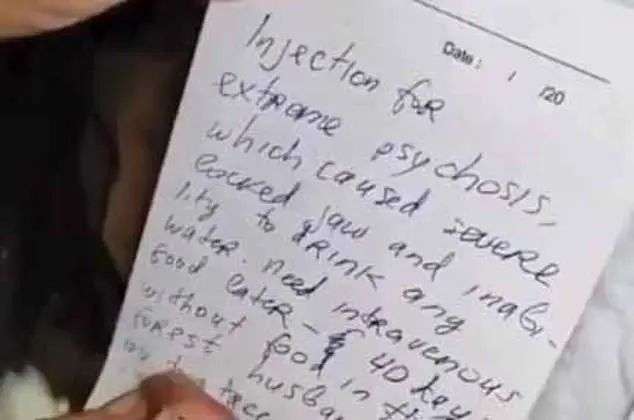 Date: / /20
Injection for
extreme psychosis,
which caused severe
locked jaw and inabi-
lity to drink any
water. Need intravenous
food later - 40 day
without food in the
forest. husba